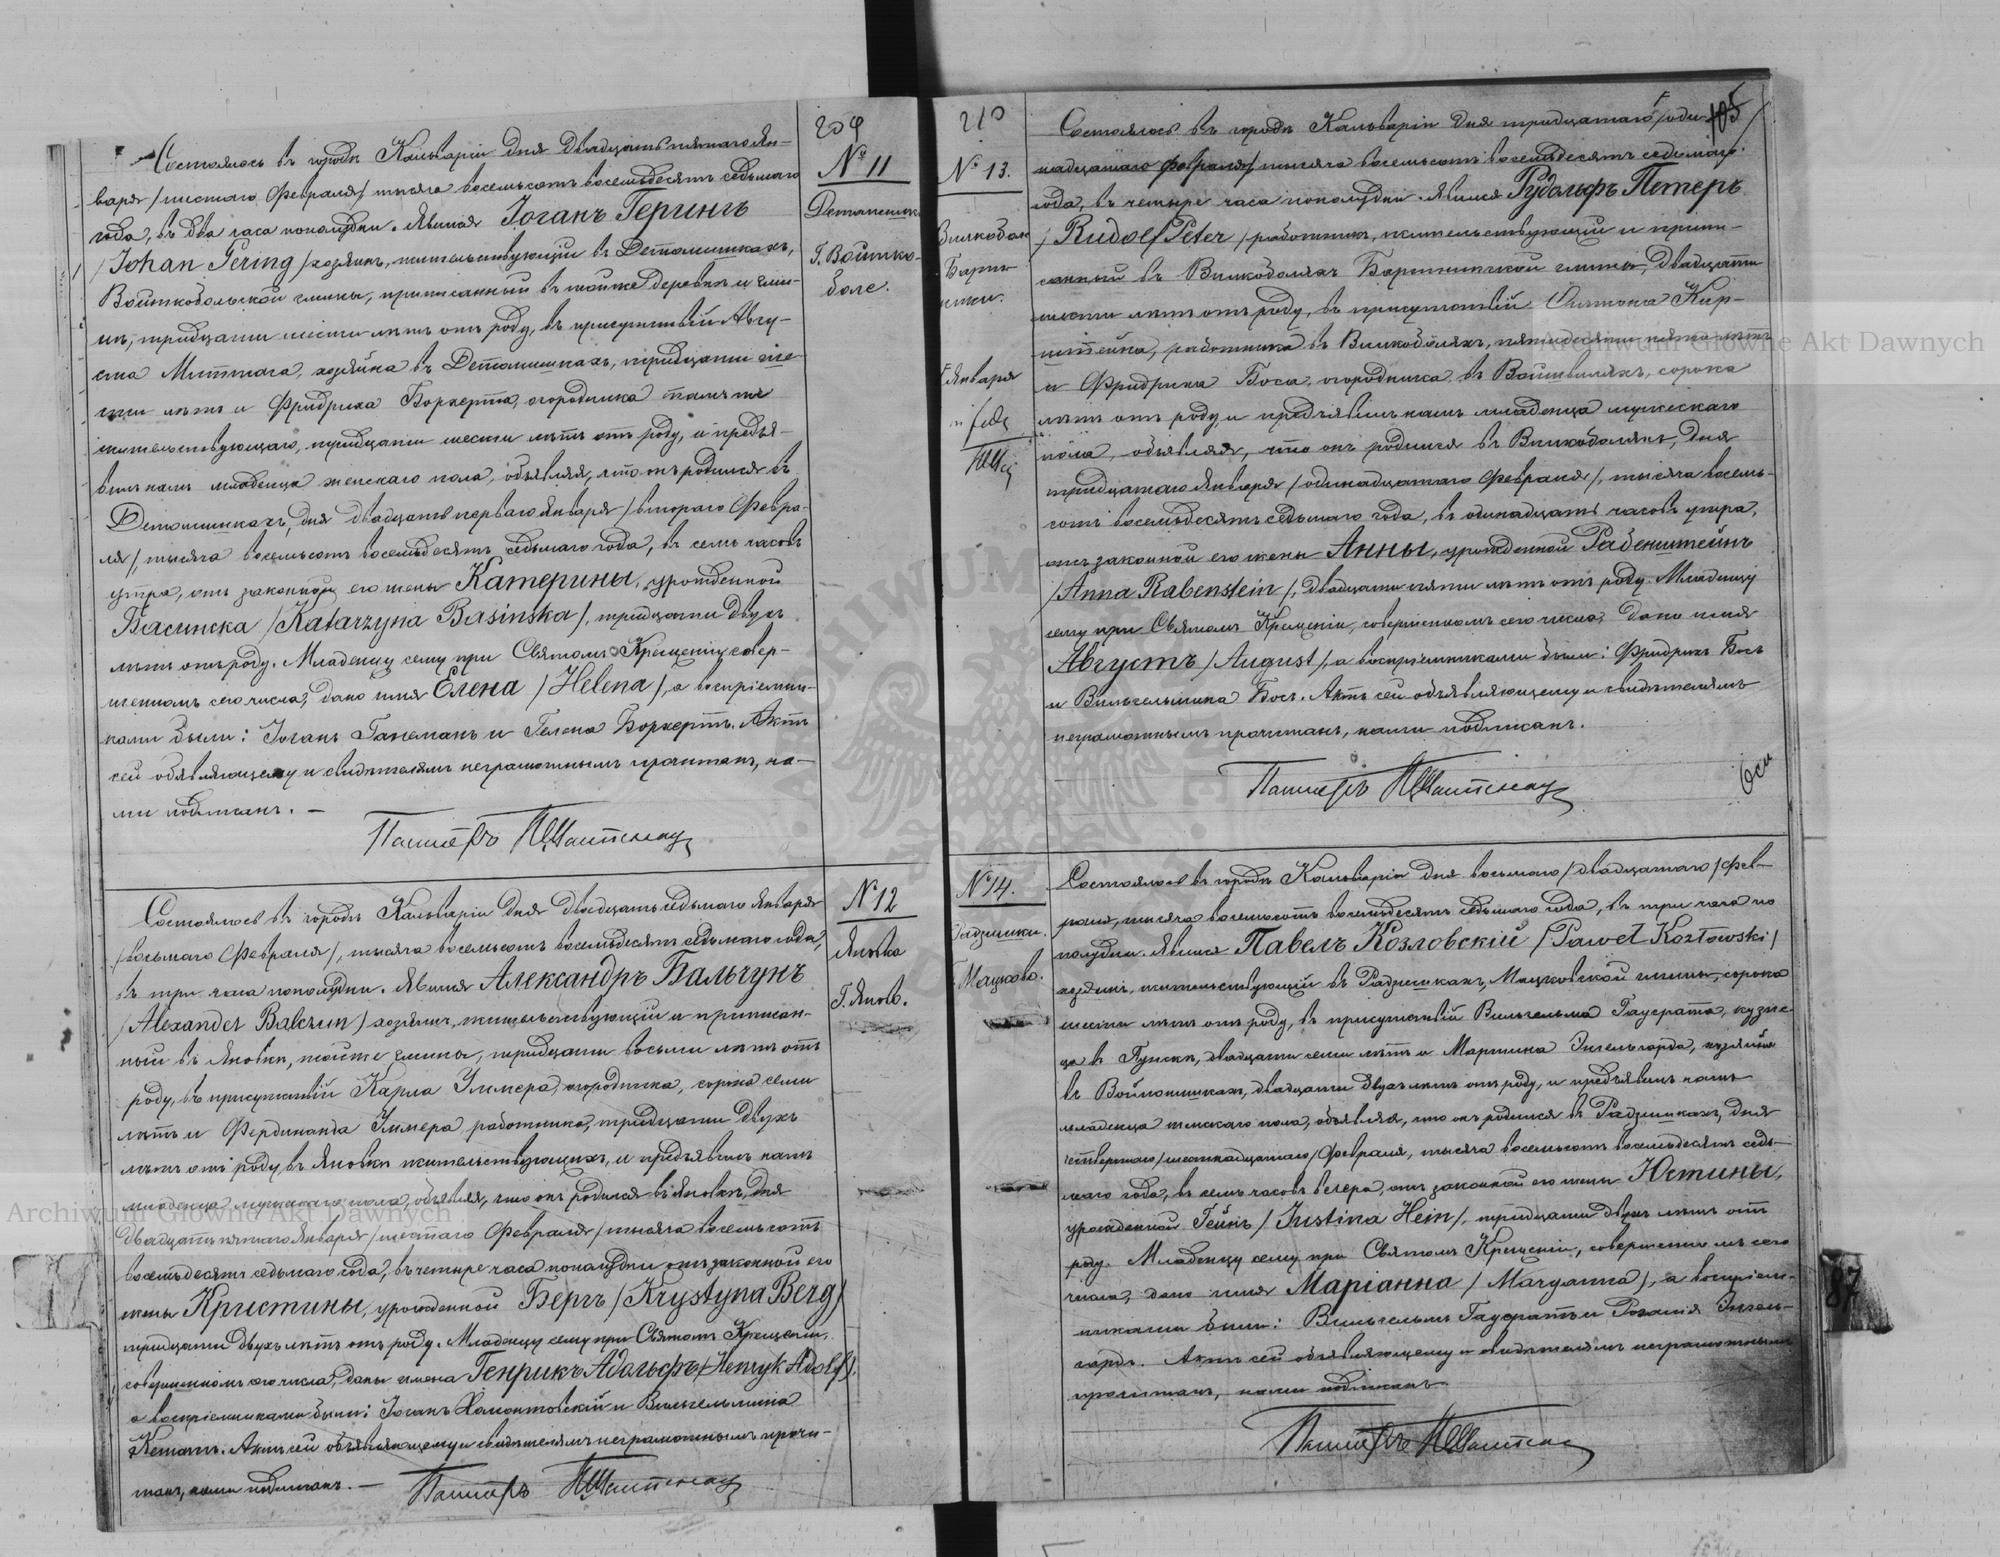 209
№ 11
Детомишк
Г. Войтко-
боле.
Состоялось въ городѣ Кальваріи дня двадцать пятаго Ян-
варя /шестаго Февраля/ тысяча восемьсотъ восемьдесятъ седьмаго
года, въ два часа пополудни. Явился Іоганъ Герингъ
/Johan Gering/ хозяинъ, жительствующій въ Детомишкахъ,
Войткобольской гмины, приписанный въ тойже деревнѣ и гми-
нѣ, тридцати шести лѣтъ отъ роду, въ присутствіи Авгу-
ста, хозяйна въ Детомишкахъ, тридцати
лѣтъ и Фридриха Боркерта, огородника тамъ же
жительствующаго, тридцати шести лѣтъ отъ роду, и предъя-
вилъ намъ младенца женскаго пола, объявляя, что онъ родился въ
Детомишкахъ, дня двадцать перваго Января /втораго Февра-
ля/, тысяча восемьсотъ восемьдесятъ седьмаго года, въ семь часовъ
утра, отъ законной его жены Катерины, урожденной
Басинска /Katarzyna Basinska/, тридцати двухъ
лѣтъ отъ роду. Младенцу сему при Святомъ Крещеніи, совер-
шенномъ сего числа, дано имя Елена /Helena/, а воспріемни-
ками были: Іоганъ Ганеманъ и Гелена Боркертъ. Актъ
сей объявляющему и свидѣтелямъ неграмотнымъ прочитанъ, на-
ми подписанъ. —
Пасторъ
№ 12
Яновка
Г. Янов.
Состоялось въ городѣ Кальваріи дня двадцать седьмаго Января
/восьмаго Февраля/, тысяча восемьсотъ восемьдесятъ седьмаго года,
въ три часа пополудни. Явился Александръ Бальчунъ
/Alexander Balczun/ хозяинъ, жительствующій и приписан-
ный въ Яновкѣ, тойже гмины, тридцати восьми лѣтъ отъ
роду, въ присутствіи Карла Уммера, огородника, сорока семи
лѣтъ и Фердинанда Уммера, работника, тридцати двухъ
лѣтъ отъ роду, въ Яновкѣ жительствующихъ, и предъявилъ намъ
младенца мужскаго пола, объявляя, что онъ родился въ Яновкѣ, дня
двадцать пятаго Января /шестаго Февраля/ тысяча восемьсотъ
восемьдесятъ седьмаго года, въ четыре часа пополудни отъ законной его
жены Кристины, урожденной Бергъ /Krystyna Berg/
тридцати двухъ лѣтъ отъ роду. Младенцу сему при Святомъ Крещеніи,
совершенномъ сего числа, даны имена Генрикъ Адольфъ /Henryk Adolf/,
а воспріемниками были: Іоганъ Хамонтовскій и Вильгельмина
Актъ сей объявляющему и свидѣтелямъ неграмотнымъ прочи-
танъ, нами подписанъ. —
Пасторъ
210
105
№ 13.
Вилкобол
Январа
Состоялось въ городѣ Кальваріи дня тридцатаго /оди-
надцатаго февраля/ тысяча восемьсотъ восемьдесятъ седьмаго
года, въ четыре часа пополудни. Явился Рудольфъ Петеръ
/Rudolf Peter/ работникъ, жительствующій и припи-
санный въ Вилкоболяхъ гмины, двадцати
шести лѣтъ отъ роду, въ присутствіи
работника въ Вилкоболяхъ, пятидесяти пяти лѣтъ
и Фридриха Боса, огородника въ сорока
лѣтъ отъ роду, и предъявилъ намъ младенца мужескаго
пола, объявляя, что онъ родился въ Вилкоболяхъ, дня
тридцатаго Января /одинадцатаго Февраля/, тысяча восемь-
сотъ восемьдесятъ седьмаго года, въ одинадцать часовъ утра,
отъ законной его жены Анны, урожденной Рабенштейнъ
/Anna Rabenstein/, двадцати пяти лѣтъ отъ роду. Младенцу
сему при Святомъ Крещеніи, совершенномъ сего числа, дано имя
Августъ /August/, а воспріемниками были: Фридрихъ Босъ
и Вильгельмина Босъ. Актъ сей объявляющему и свидѣтелямъ
неграмотнымъ прочитанъ, нами подписанъ.
Пасторъ
№ 14.
Радзишки.
Г. Мацково.
Состоялось въ городѣ Кальваріи дня восьмаго /двадцатаго/ Фев-
раля, тысяча восемьсотъ восемьдесятъ седьмаго года, въ три часа по
полудни. Явился Павелъ Козловскій /Paweł Kozłowski/
хозяинъ, жительствующій въ Радзишкахъ, Мацковской гмины, сорока
шести лѣтъ отъ роду, въ присутствіи Вильгельма Гауерата, кузне-
ца въ Пунскѣ, двадцати семи лѣтъ и Мартина Ингельгарда, хозяйна
въ двадцати двухъ лѣтъ отъ роду, и предъявилъ намъ
младенца женскаго пола, объявляя, что онъ родился въ Радзишкахъ, дня
четвертаго /шестнадцатаго/ Февраля, тысяча восемьсотъ восемьдесятъ седь-
маго года, въ семь часовъ вечера, отъ законной его жены Юстины,
урожденной Гейнъ /Justina Hein/, тридцати двухъ лѣтъ отъ
роду. Младенцу сему при Святомъ Крещеніи, совершенномъ сего
числа, дано имя Маріанна /Maryanna/, а воспріем-
никами были: Вильгельмъ Гауератъ и Розалія Ингель-
гардъ. Актъ сей объявляющему и свидѣтелямъ неграмотнымъ
прочитанъ, нами подписанъ.
Пасторъ
87
Archiwum Główne Akt Dawnych
Archiwum Główne Akt Dawnych